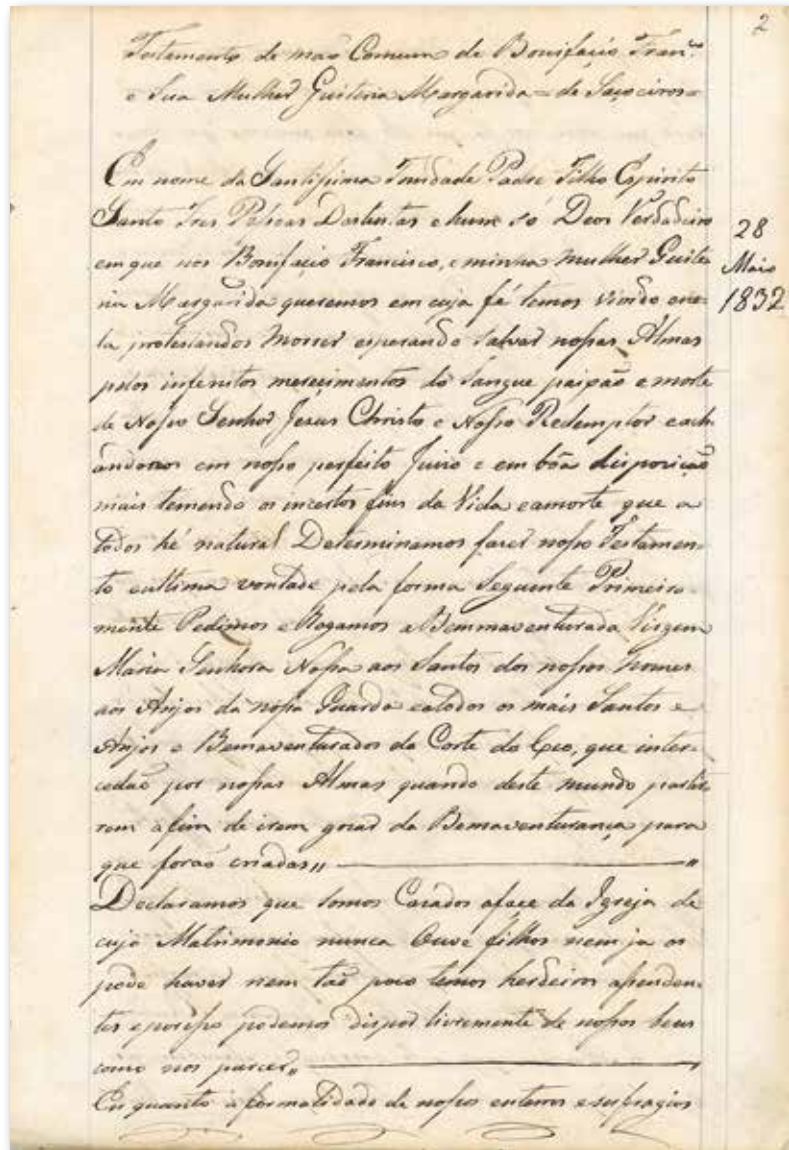 2
Testamento de maõ Comum de Bonifaçio Franco
e Sua Mulher Guiteria Margarida = de Saçoeiros =
Em nome da Santissima Trindade Padre Filho Espirito
Santo Tres Pesoas Destintas e hum só Deos Verdadeiro
28
em que nos Bonifaçio Francisco, e minha mulher Guite
Maio
ria Margarida queremos em cuja fé temos vivido ene
1832
la protestandos Morrer esperando salvar nossas Almas
pelos infenitos mereçimentos do Sangue paixaõ e morte
de Nosso Senhor Jezus Christo e Nosso Redemptor e ach
andonos em nosso perfeito Juizo e em bôa disposiçaõ
mais temendo os incertos fins da Vida eamorte que a
todos hé natural Determinamos fazer nosso Testamen
to eultima vontade pela forma Seguente Primeira
mente Pedimos e Rogamos a Bemmaventurada Virgem
Maria Senhora Nossa aos Santos dos nossos Nomes
aos Anjos da nossa Guarda eatodos os mais Santos e
Anjos e Bemaventurados da Corte do Ceo, que inter
cedaõ por nossas Almas quando deste mundo parti
rem afim de irem gozar da Bemaventurança para
que foraõ criadas,,
Declaramos que somos Cazados aface da Igreja de
cujo Matrimonio nunca Ouve filhos nem ja os
pode haver nem taõ pouco temos herdeiros assenden
tes eporisso podemos dispor livremente de nossos bens
como nos parcer,,
En quanto a formalidade de nossos enterros e sufragios